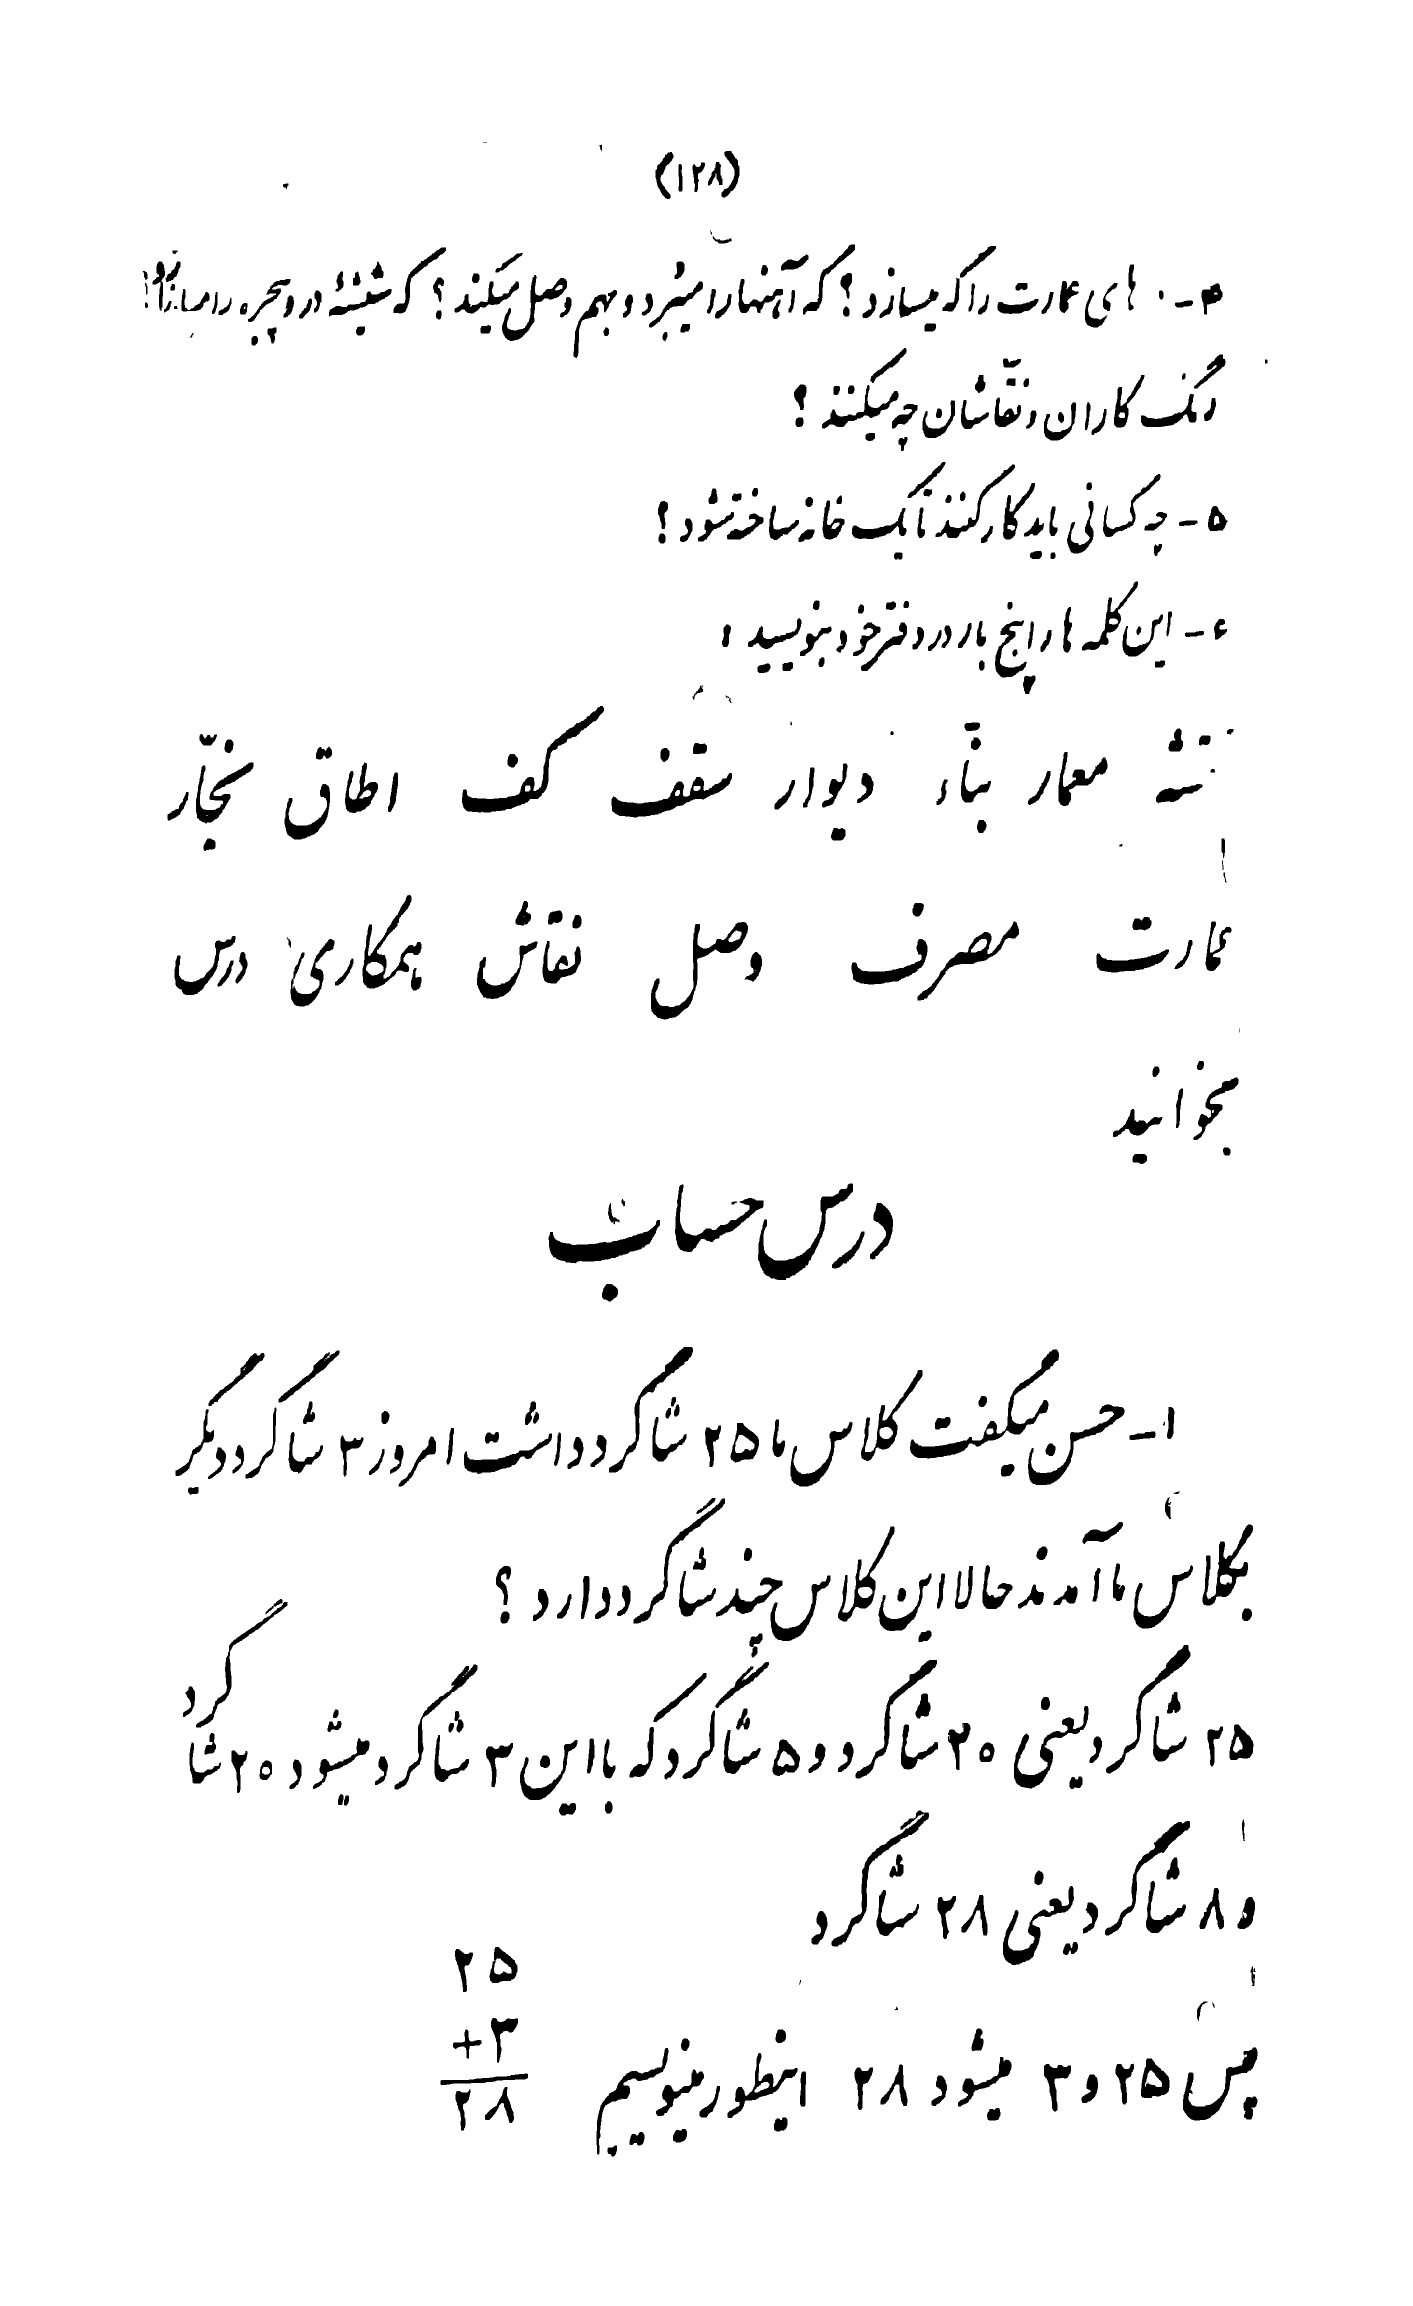 (۱۲۸)
۴- های عمارت را که میسازد؟ که آهنها را میبرد و بهم وصل میکند؟ که شیشهٔ در و پنجره را میاندازد؟
رنگ کاران و نقّاشان چه میکنند؟
۵- چه کسانی باید کار کنند تا یک خانه ساخته شود؟
۶- این کلمه ها را پنج بار در دفتر خود بنویسید:
معمار بنّاء دیوار سقف کف اطاق نجّار
عمارت مصرف وصل نقاش همکاری درس
بخوانید
درس حساب
۱- حسن میگفت کلاس ما ۲۵ شاگرد داشت امروز ۳ شاگرد دیگر
بکلاس ما آمدند حالا این کلاس چند شاگرد دارد؟
۲۵ شاگرد یعنی ۲۰ شاگرد و ۵ شاگرد که با این ۳ شاگرد میشود ۲۰ شاگرد
و ۸ شاگرد یعنی ۲۸ شاگرد
پس ۲۵ و ۳ میشود ۲۸ اینطور مینویسیم
۲۵
+۳
۲۸